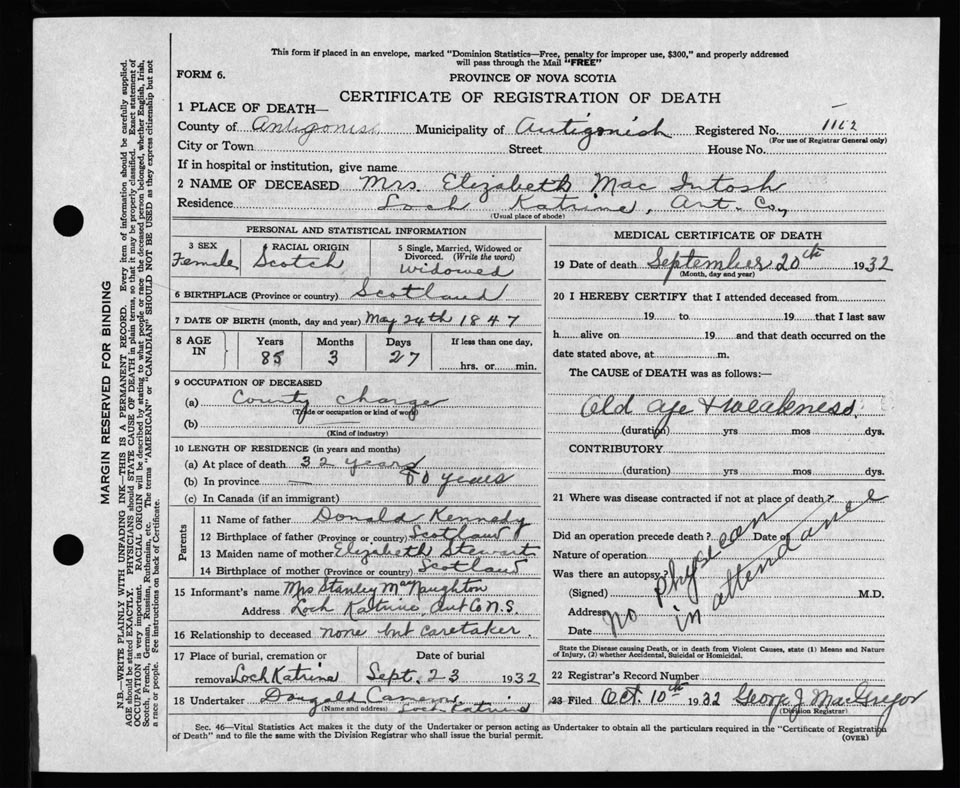 This form if placed in an envelope, marked "Dominion Statistics—Free, penalty for improper use, $300," and properly addressed
will pass through the Mail "FREE"
FORM 6.
PROVINCE OF NOVA SCOTIA
CERTIFICATE OF REGISTRATION OF DEATH
1 PLACE OF DEATH—
County of Antigonish Municipality of Antigonish Registered No. 1162
(For use of Registrar General only)
City or Town Street House No.
If in hospital or institution, give name
2 NAME OF DECEASED Mrs. Elizabeth Mac Intosh
Residence Loch Katrine, Ant. Co,
(Usual place of abode)
PERSONAL AND STATISTICAL INFORMATION
3 SEX Female
4 RACIAL ORIGIN Scotch
5 Single, Married, Widowed or
Divorced. (Write the word)
Widowed
6 BIRTHPLACE (Province or country) Scotland
7 DATE OF BIRTH (month, day and year) May 24th 1847
8 AGE IN
Years Months Days If less than one day,
85 3 27 hrs. or min.
9 OCCUPATION OF DECEASED
(a) County charge
(Trade or occupation or kind of work)
(b)
(Kind of industry)
10 LENGTH OF RESIDENCE (in years and months)
(a) At place of death 32 years
(b) In province 80 years
(c) In Canada (if an immigrant)
Parents
11 Name of father Donald Kennedy
12 Birthplace of father (Province or country) Scotland
13 Maiden name of mother Elizabeth Stewart
14 Birthplace of mother (Province or country) Scotland
15 Informant's name Mrs Stanley MacNaughton
Address Loch Katrine Ant Co N.S.
16 Relationship to deceased none but caretaker.
17 Place of burial, cremation or Date of burial
removal Loch Katrine Sept. 23 1932
18 Undertaker Dougald Cameron
(Name and address) Loch Katrine
MEDICAL CERTIFICATE OF DEATH
19 Date of death September 20th 1932
(Month, day and year)
20 I HEREBY CERTIFY that I attended deceased from
19 to 19 that I last saw
h alive on 19 and that death occurred on the
date stated above, at m.
The CAUSE of DEATH was as follows:—
Old age + weakness.
(duration) yrs mos dys.
CONTRIBUTORY
(duration) yrs mos dys.
21 Where was disease contracted if not at place of death?
Did an operation precede death? Date of
Nature of operation
Was there an autopsy?
(Signed) M.D.
Address
Date
no physician
in attendance
State the Disease causing Death, or in death from Violent Causes, state (1) Means and Nature
of Injury, (2) whether Accidental, Suicidal or Homicidal.
22 Registrar's Record Number
23 Filed Oct. 10th 1932 George J MacGregor
(Division Registrar)
Sec. 46—Vital Statistics Act makes it the duty of the Undertaker or person acting as Undertaker to obtain all the particulars required in the "Certificate of Registration
of Death" and to file the same with the Division Registrar who shall issue the burial permit.
(OVER)
MARGIN RESERVED FOR BINDING
N.B.—WRITE PLAINLY WITH UNFADING INK—THIS IS A PERMANENT RECORD. Every item of information should be carefully supplied.
AGE should be stated EXACTLY. PHYSICIANS should STATE CAUSE OF DEATH in plain terms, so that it may be properly classified. Exact statement of
OCCUPATION is very important. RACIAL ORIGIN will be described by stating to what people or race the deceased person belonged, whether English, Irish,
Scotch, French, German, Russian, Ruthenian, etc. The terms "AMERICAN" or "CANADIAN" SHOULD NOT BE USED as they express citizenship but not
a race or people. See instructions on back of Certificate.